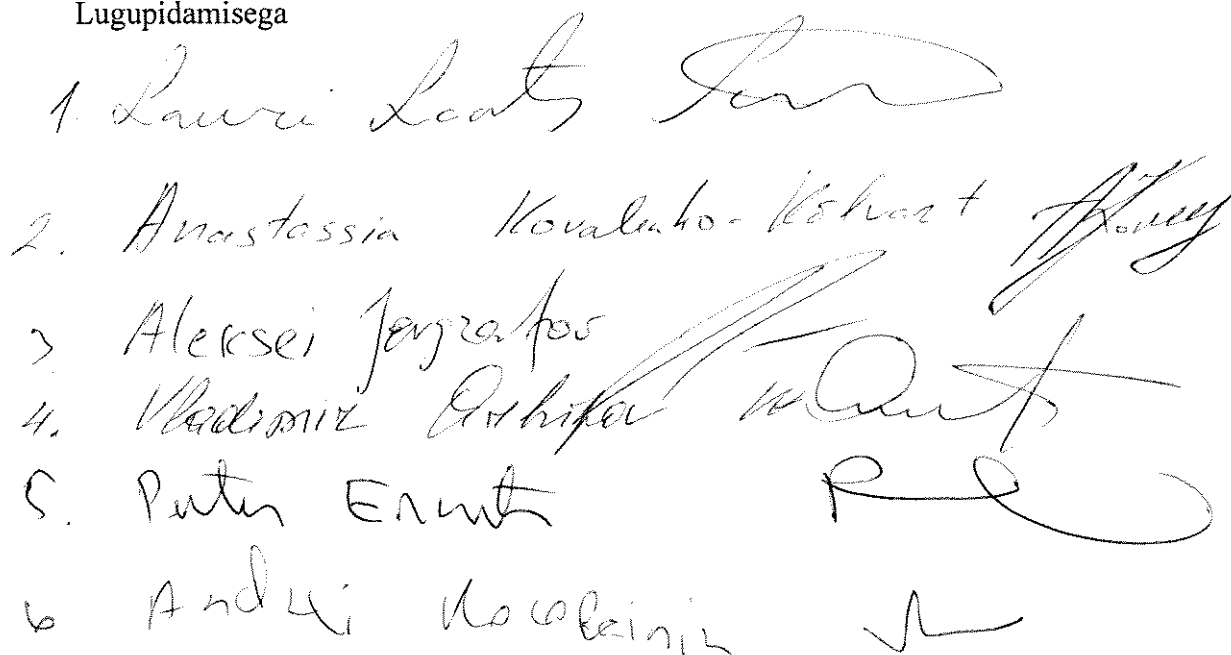 Lugupidamisega
1. Lauri Laats
2. Anastassia Kovalenko-Kõlvart
3 Aleksei Jevgrafov
4. Vladimir Arhipov
5. Peeter Ernits
6 Andrei Korobeinik